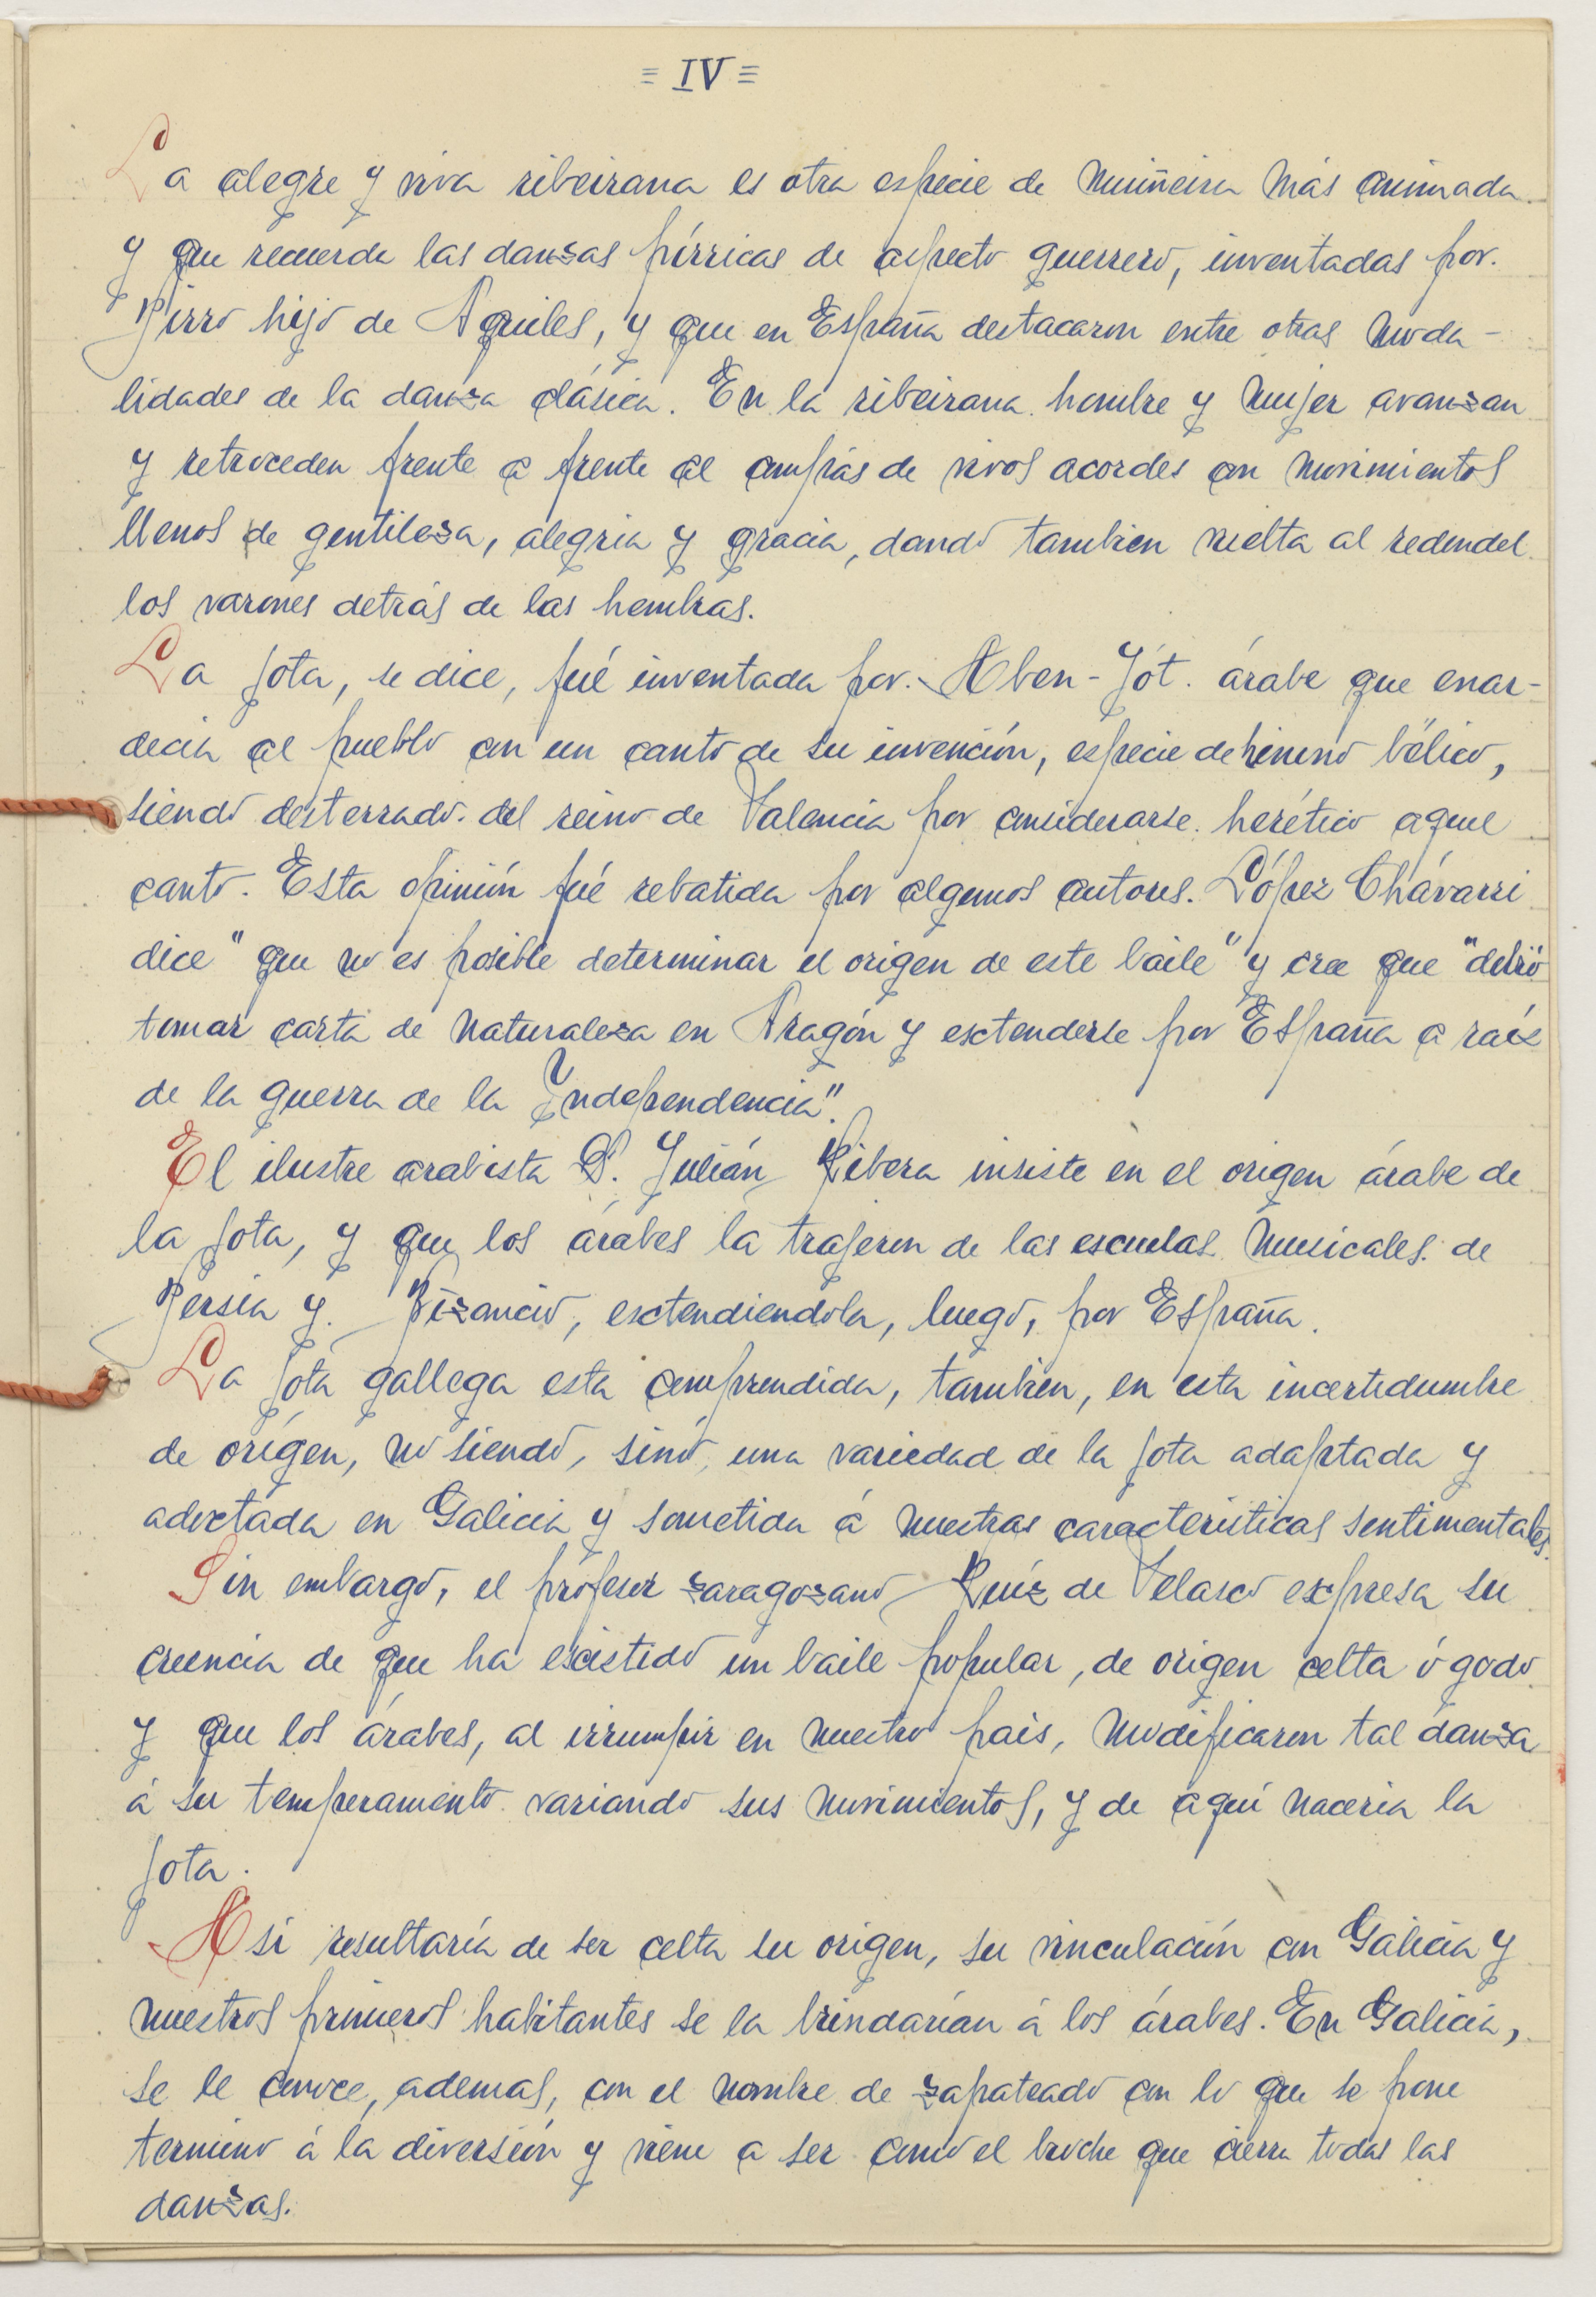 = IV =
La alegre y viva ribeirana es otra especie de muiñeira más animada
y que recuerda las danzas pírricas de aspecto guerrero, inventadas por
Pirro hijo de Aquiles, y que en España destacaron entre otras moda-
lidades de la danza clásica. En la ribeirana hombre y mujer avanzan
y retroceden frente a frente al compás de vivos acordes con movimientos
llenos de gentileza, alegria y gracia, dando tambien vuelta al redondel
los varones detrás de las hembras.
La jota, se dice, fué inventada por Aben-Jót. árabe que enar-
decia al pueblo con un canto de su invención, especie de himno bélico,
siendo desterrado del reino de Valencia por considerarse herético aquel
canto. Esta opinión fué rebatida por algunos autores. López Chávarri
dice "que no es posible determinar el origen de este baile" y cree que "debió
tomar carta de naturaleza en Aragón y esctenderse por España a raíz
de la guerra de la Independencia".
El ilustre arabista D. Julián Ribera insiste en el origen árabe de
la jota, y que los árabes la trajeron de las escuelas musicales de
Persia y Bizancio, esctendiendola, luego, por España.
La jota gallega esta comprendida, tambien, en esta incertidumbre
de orígen, no siendo, sinó, una variedad de la jota adaptada y
adoctada en Galicia y sometida á nuestras caracteristicas sentimentales.
Sin embargo, el prófesor zaragozano Ruíz de Velasco escpresa su
creencia de que ha escistido un baile popular, de origen celta ó godo
y que los árabes, al irrumpir en nuestro pais, modificaron tal danza
á su temperamento variando sus movimientos, y de aquí naceria la
jota.
Asi resultaría de ser celta su origen, su vinculación con Galicia y
nuestros primeros habitantes se la brindarían á los árabes. En Galicia,
se le conoce, ademas, con el nombre de zapateado con lo que se pone
termino á la diversión y viene a ser como el broche que cierra todas las
danzas.